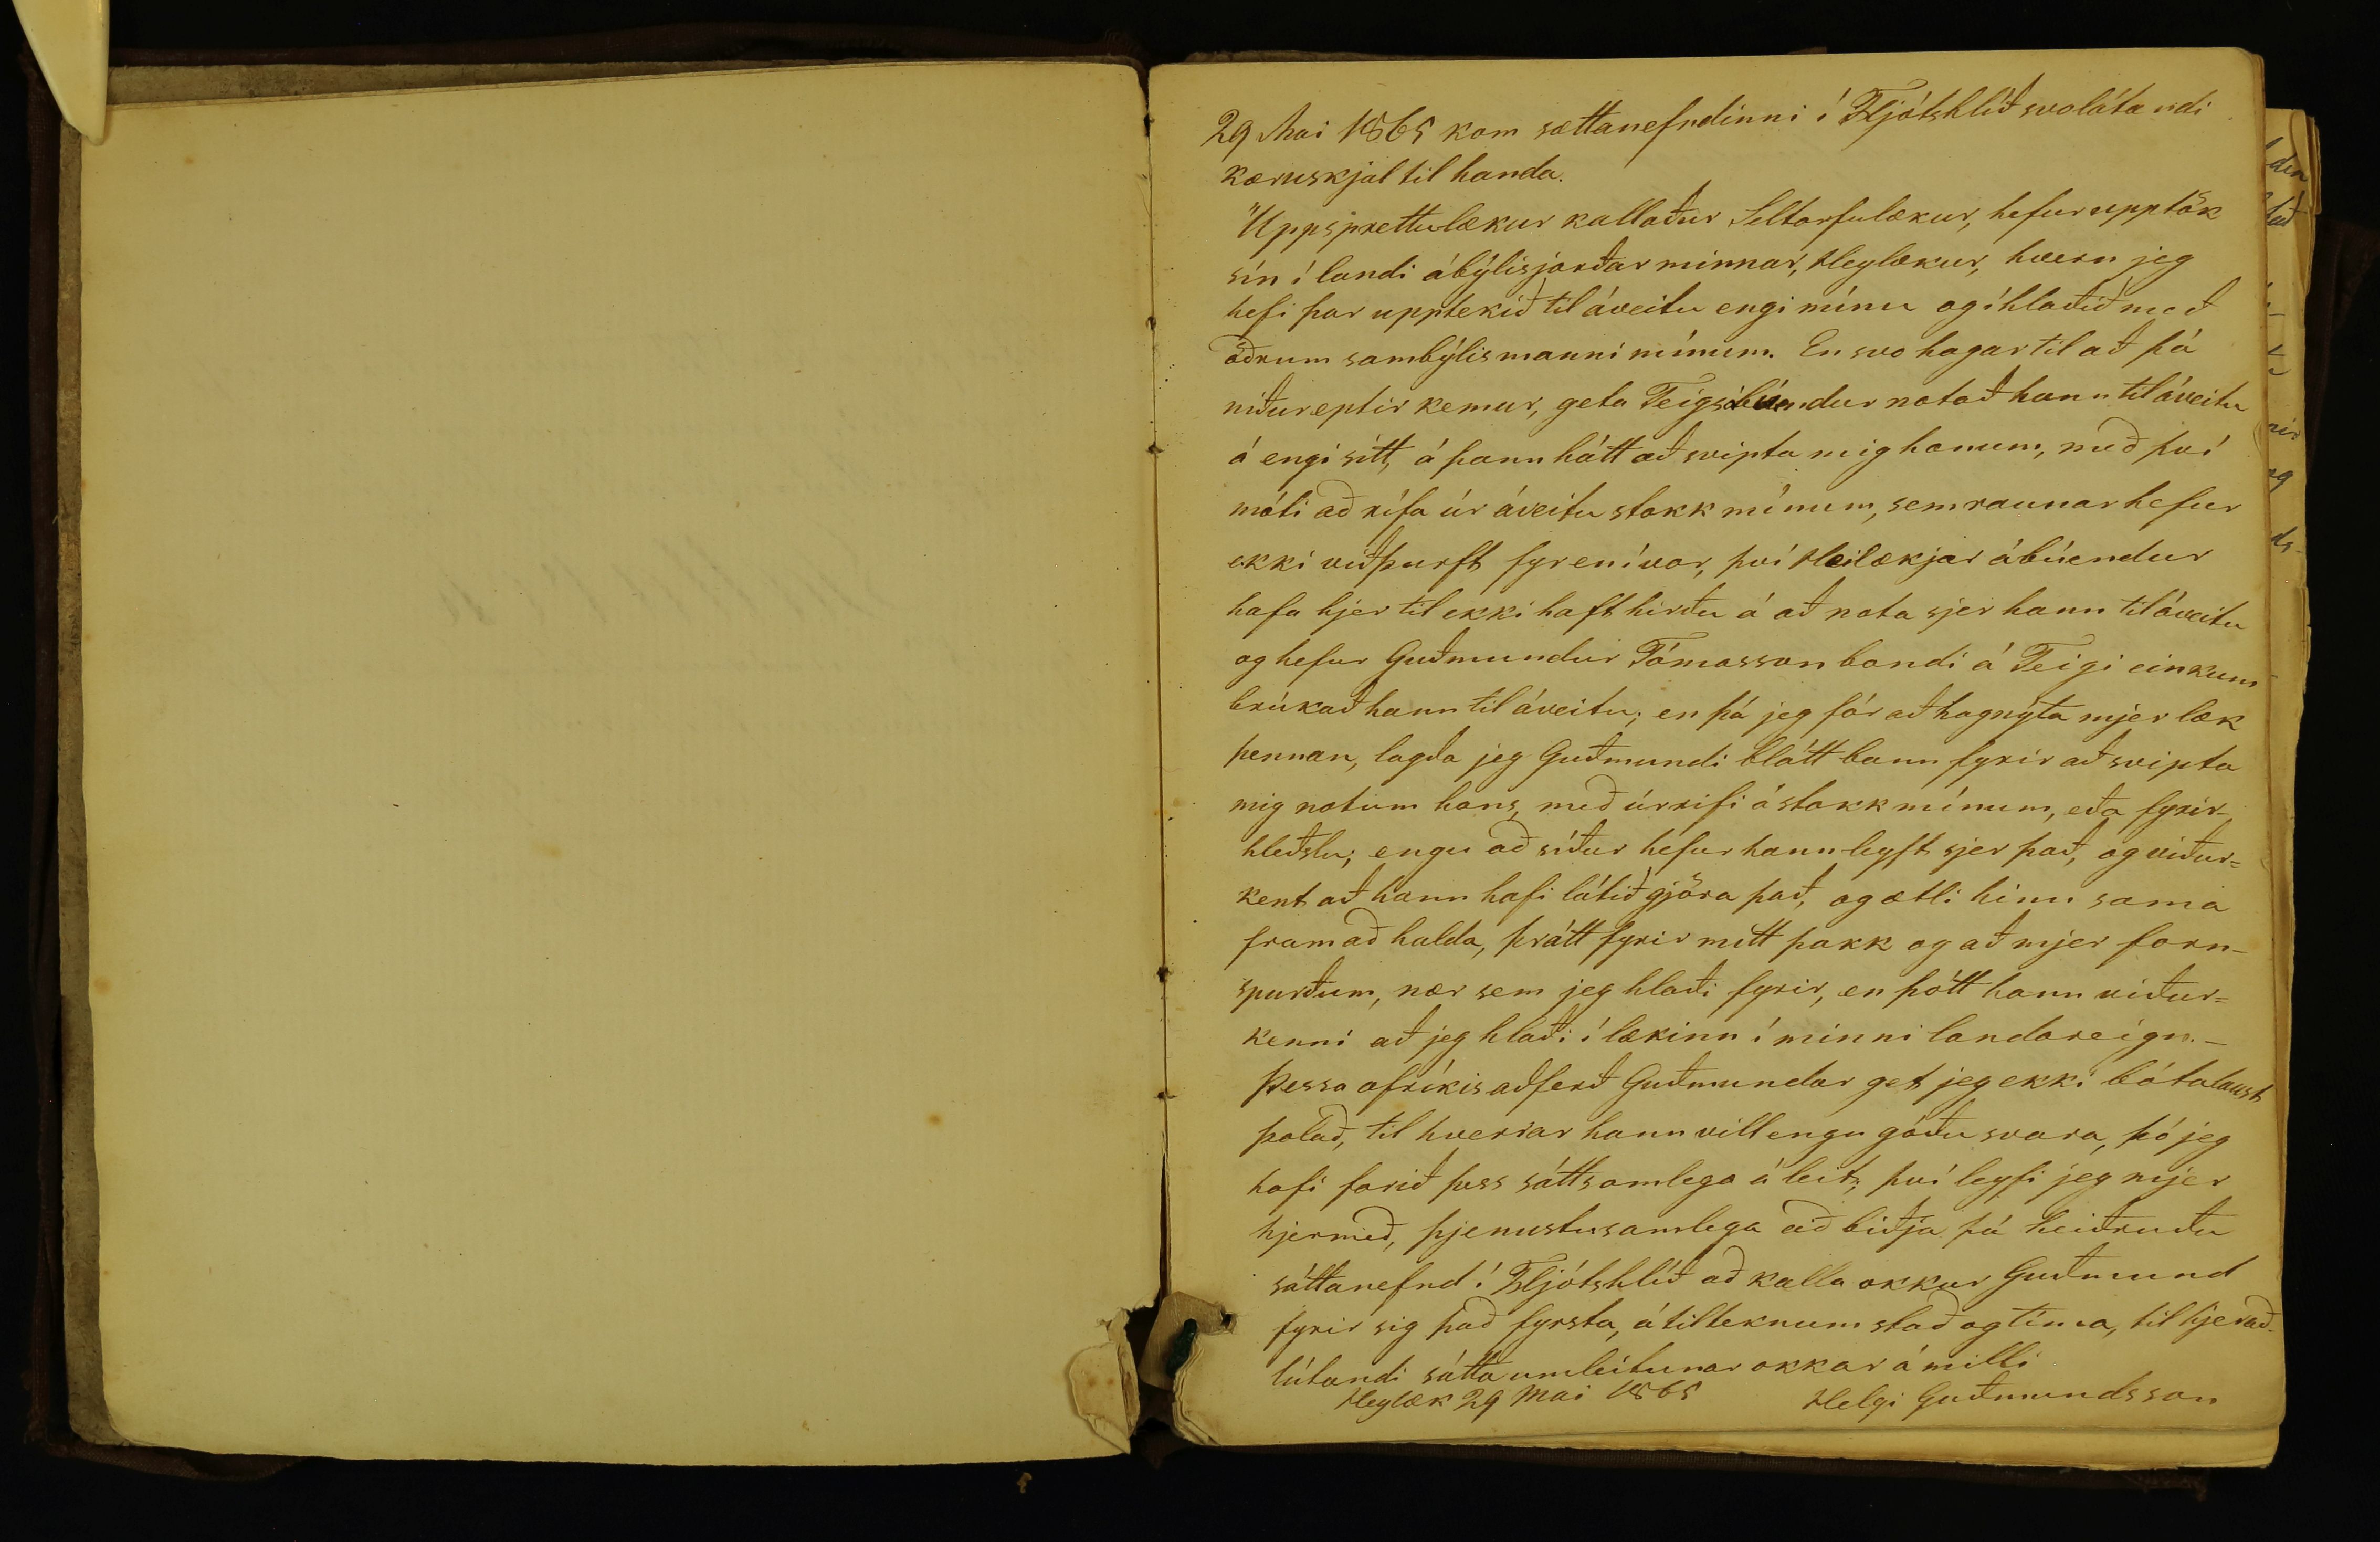 29 Mai 1865 kom sættanefndinni í Fljótshlíð svolátandi
kæruskjal til handa.
"Uppsprettulækur kallaður Seltorfulækur, hefur upptök
sín í landi ábýlisjarðar minnar, Heylækur, hvern jeg
hefi þar upptekið til áveitu engi mínu og íhlaðið með
öðrum sambýlismanni mínum. En svo hagar til að þá
niðureptir kemur, geta Teigsábúendur notað hann til áveitu
á engi sitt, á þann hátt að svipta mig honum, með því
móti að rífa úr áveitu stokk mínum, sem raunar hefur
ekki viðþurft fyr en í vor, því Heilækjar ábúendur
hafa hjer til ekki haft hirðu á að nota sjer hann til áveitu
og hefur Guðmundur Tómasson bondi á Teigi einkum
brúkað hann til áveitu; en þá jeg fór að hagnýta mjer læk
þennan, lagða jeg Guðmundi blátt bann fyrir að svipta
mig notum hans, með úrrifi á stokk mínum, eða fyrir-
hleðslu; engu að síður hefur hann leyft sjer það, og viður=
kent að hann hafi látið gjöra það, og ætli hinu sama
fram að halda, þrátt fyrir mitt þakk og að mjer forn-
spurðum, nær sem jeg hlaði fyrir, en þótt hann viður=
kenni að jeg hlaði í lækinn í minni landareign. -
Þessa ofríkis aðferð Guðmundar get jeg ekki bótalaust
þolað, til hverrar hann vill engu góðu svara, þó jeg
hafi farið þess sáttsamlega á leit; því leyfi jeg mjer
hjermeð, þjenustusamlega að biðja þá heiðruðu
sáttanefnd í Fljótshlíð að kalla okkur Guðmund
fyrir sig það fyrsta, á tilteknum stað og tíma, til hjerað-
lútandi sátta umleitunar okkar á milli
Heylæk 29 Mai 1865 Helgi Guðmundsson